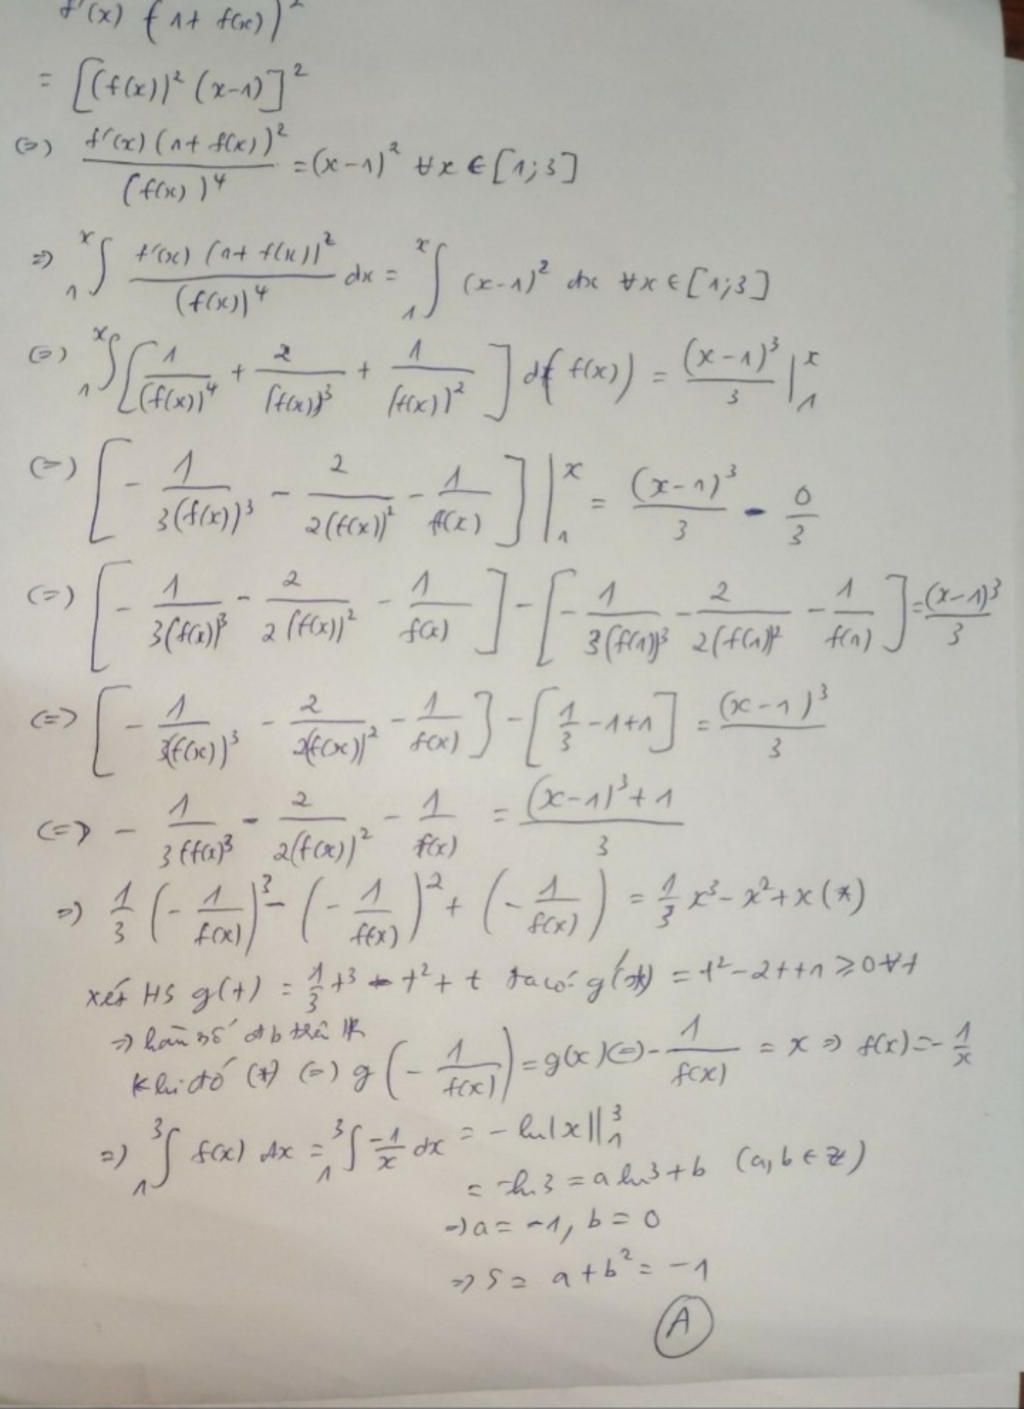 f'(x) (1+ f(x))²
= [(f(x))² (x-1)]²
(=) f'(x) (1+ f(x))² / (f(x))⁴ = (x-1)² ∀x ∈ [1;3]
=) ₁ˣ∫ f'(x) (1+ f(x))² / (f(x))⁴ dx = ₁ˣ∫ (x-1)² dx ∀x ∈ [1;3]
(=) ₁ˣ∫ [1/(f(x))⁴ + 2/(f(x))³ + 1/(f(x))²] d(f(x)) = (x-1)³/3 |₁ˣ
(=) [- 1/3(f(x))³ - 2/2(f(x))² - 1/f(x)] |₁ˣ = (x-1)³/3 - 0/3
(=) [- 1/3(f(x))³ - 2/2(f(x))² - 1/f(x)] - [- 1/3(f(1))³ - 2/2(f(1))² - 1/f(1)] = (x-1)³/3
(=) [- 1/3(f(x))³ - 2/2(f(x))² - 1/f(x)] - [1/3 -1+1] = (x-1)³/3
(=) - 1/3(f(x))³ - 2/2(f(x))² - 1/f(x) = (x-1)³+1 / 3
=) 1/3 (- 1/f(x))³ - (- 1/f(x))² + (- 1/f(x)) = 1/3 x³ - x² + x (*)
xét HS g(t) = 1/3 t³ - t² + t ta có: g'(t) = t² - 2t + 1 ≥ 0 ∀t
=) hàm số đb trên R
Khi đó (*) (=) g (- 1/f(x)) = g(x) (=) - 1/f(x) = x =) f(x) = - 1/x
=) ₁³∫ f(x) dx = ₁³∫ -1/x dx = - ln|x| |₁³
= -ln3 = a ln3 + b (a, b ∈ Z)
=) a = -1, b = 0
=) S = a + b² = -1
A